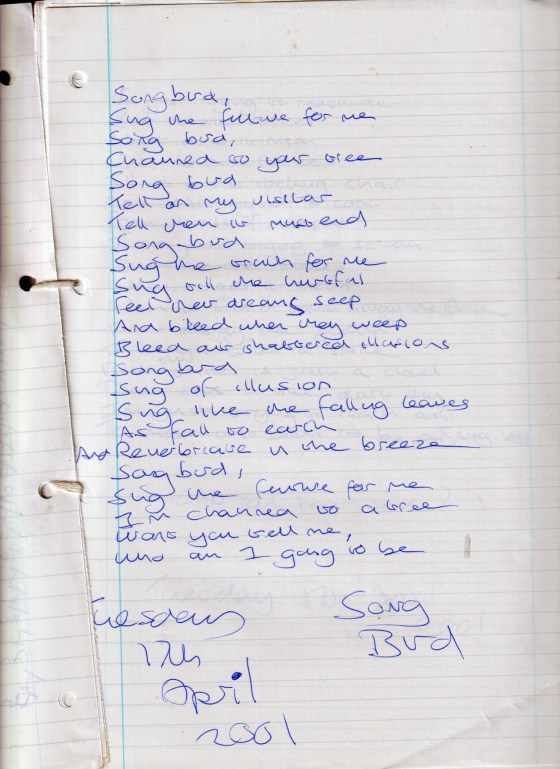 Songbird,
Sing the future for me
Song bird,
Chained to your tree
Song bird
Tell on my visitor
Tell them it must end
Song-bird
Sing the truth for me
Sing till the hurtful
Feel their dreams seep
And bleed when they weep
Bleed our shattered illusions
Songbird
Sing of illusion
Sing like the falling leaves
As fall to earth
And Reverbriate in the breeze
Songbird,
Sing the future for me
I'm chained to a tree
Wont you tell me,
Who am I going to be
Tuesday
17th
April
2001
Song
Bird